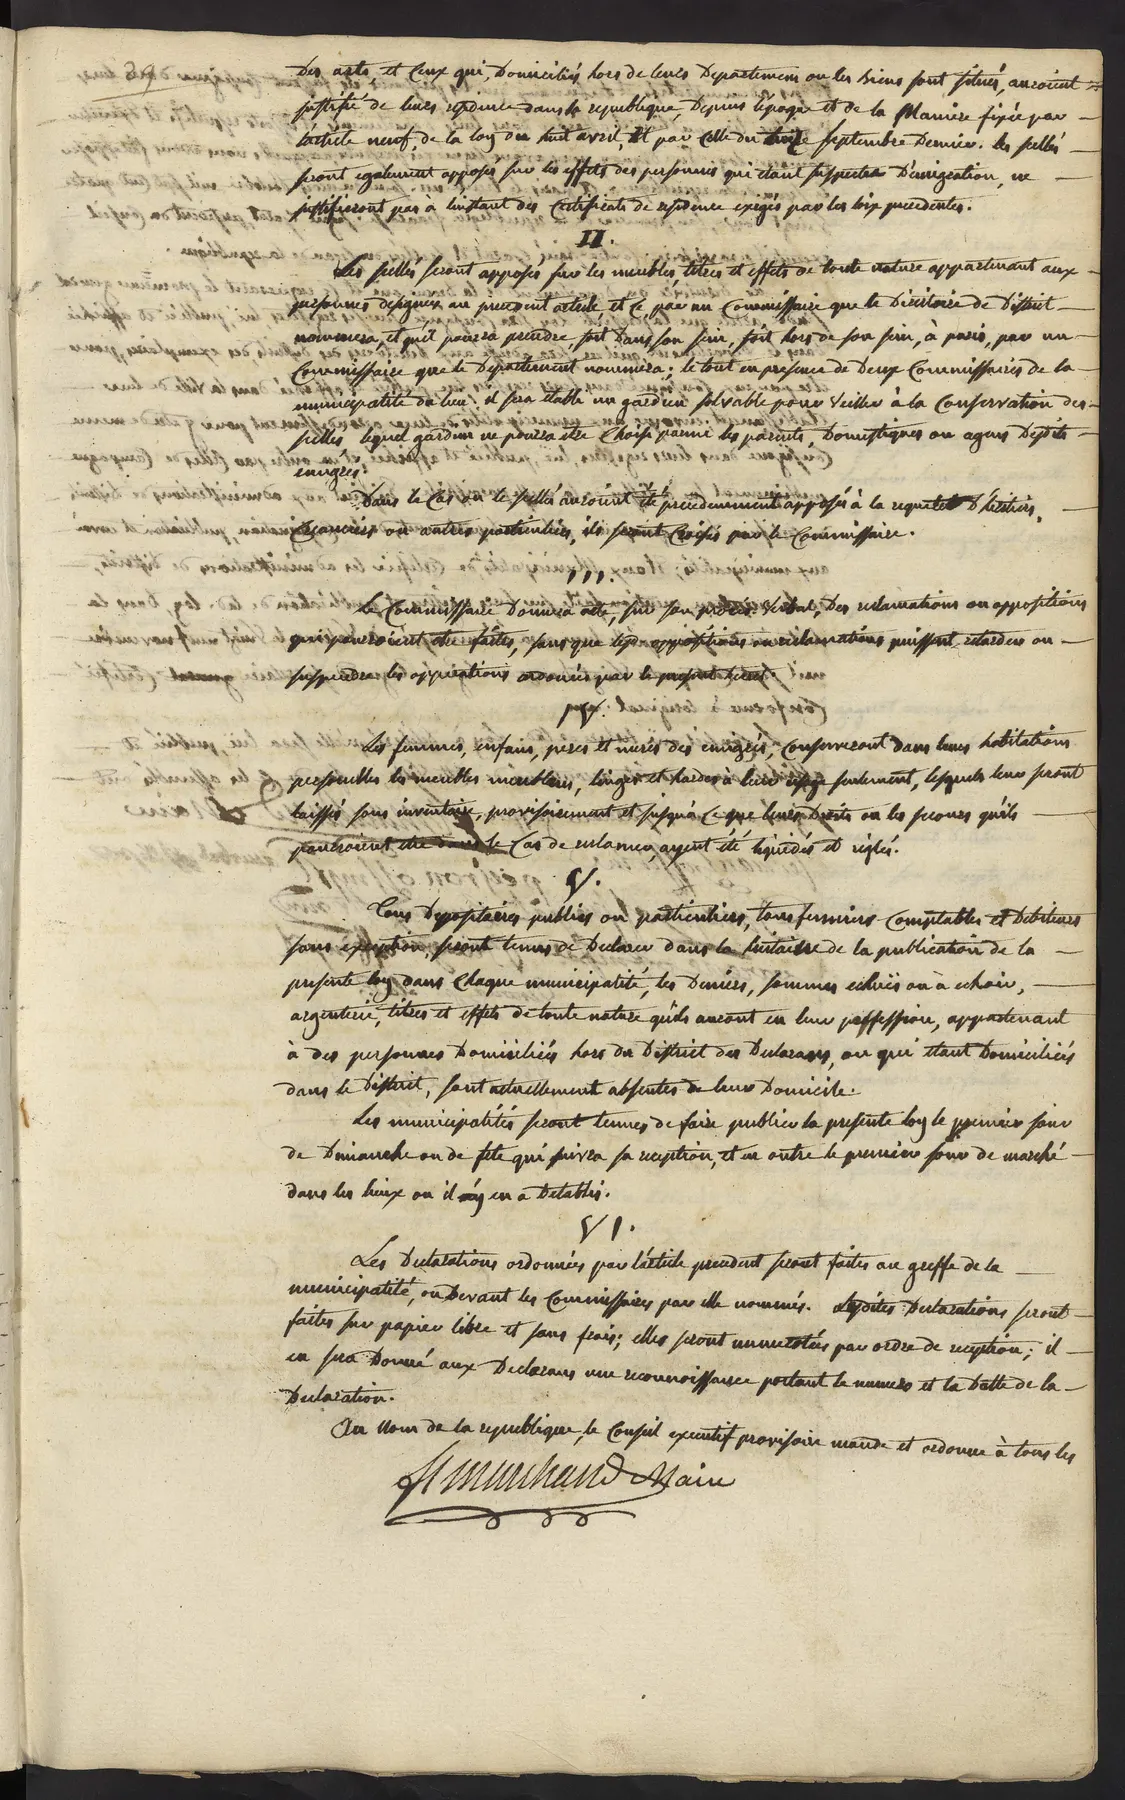 39
Des arts, et Ceux qui, Domiciliés hors de leurs Departemens ou les Biens sont situés, auroient
justifié de leurs residence dans la republique, Depuis l'epoque et de la Maniere fixée par
l'article neuf, de la loy du huit avril, et par celle du Septembre Dernier. les scellés
seront egalement apposés sur les effets des personnes qui etant suspectes D'emigration, ne
justifieront pas à linstant des Certificats de residence exigés par les loix precedentes.
II.
Les scellés seront apposés sur les meubles, titres et effets de toute nature appartenant aux
personnes designées au precedent article, et ce par un Commissaire que le Directoire de District
nommera, et qu'il pourra prendre, soit Dans son sein, soit hors de son sein, à paris, par un
Commissaire que le Departement nommera; le tout en presence de Deux Commissaires de la
municipalité du lieu. il sera etabli un gardien solvable pour Veiller à la Conservation des
scellés lequel gardien ne pourra etre Choisi parmi les parents, Domestiques ou agens Desdits
emigrés.
Dans le Cas ou le scellé auroient été precedemment apposés à la requete D'heritiers,
Creanciers ou autres particuliers, ils seront Croisés par le Commissaire.
III.
Le Commissaire Donnera acte, sur son procès Verbal, Des reclamations ou oppositions
qui pourroient etre faites, sans que les oppositions ou reclamations puissent retarder ou
suspendre les opperations ordonnées par le present Decret.
Les femmes, enfans, peres et meres des emigrés, Conserveront dans leurs habitations
personnelles les meubles meublans, linges et hardes à leur usage seulement, lesquels leur seront
laissés sans inventaire, provisoirement et jusqu'à ce que leurs Droits ou les secours qu'ils
pourroient etre dans le Cas de reclamer, ayent été liquidés et reglés.
V.
Tous Depositaires publics ou particuliers, tous fermiers Comptables et Debiteurs
sans exception, seront tenus de Declarer dans la huitaine de la publication de la
presente loy dans Chaque municipalité, les Deniers, sommes echües ou à echoir,
argenterie, titres et effets de toute nature qu'ils auront en leur possession, appartenant
à des personnes Domiciliés hors du District des Declarans, ou qui etant Domiciliés
dans le District, sont actuellement absentes de leur Domicile.
Les municipalités seront tenues de faire publier la presente loy le premier jour
de Dimanche ou de fete qui suivra sa reception, et en outre le premier jour de marché
dans les lieux ou il y en a Detablis.
VI.
Les Declarations ordonnées par l'article precedent seront faites au greffe de la
municipalité, ou Devant les Commissaires par elle nommés. Lesdites Declarations seront
faites sur papier libre et sans frais; elles seront numerotées par ordre de reception; il
en sera Donné aux Declarans une reconnoissance portant le numero et la Datte de la
Declaration.
Au Nom de la republique, le Conseil executif provisoire mande et ordonne à tous les
marchand Maire